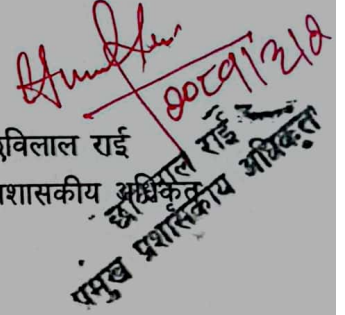 २०८१/३/२
विलाल राई
प्रशासकीय अधिकृत
छविलाल राई
प्रमुख प्रशासकीय अधिकृत